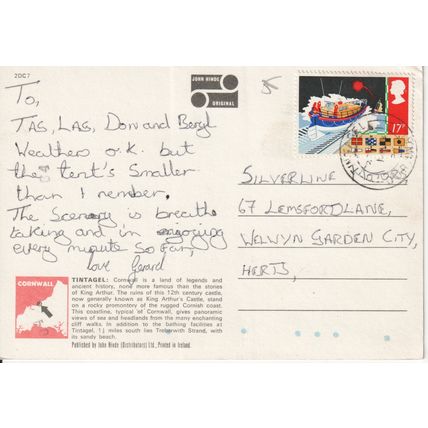 2DC7
JOHN HINDE
ORIGINAL
17p
To,
TAS, LAS, Dor and Beryl
Weather o.k. but
the tent's Smaller
than I rember.
The Scenery is breath
taking and im enjoying
every minute So far,
love Gerard
SILVERLINE
67 LEMSFORD LANE,
WELWYN GARDEN CITY,
HERTS,
CORNWALL
TINTAGEL: Cornwall is a land of legends and
ancient history, none more famous than the stories
of King Arthur. The ruins of this 12th century castle,
now generally known as King Arthur's Castle, stand
on a rocky promontory of the rugged Cornish coast.
This coastline, typical of Cornwall, gives panoramic
views of sea and headlands from the many enchanting
cliff walks. In addition to the bathing facilities at
Tintagel, 1½ miles south lies Trebarwith Strand, with
its sandy beach.
Published by John Hinde (Distributors) Ltd., Printed in Ireland.